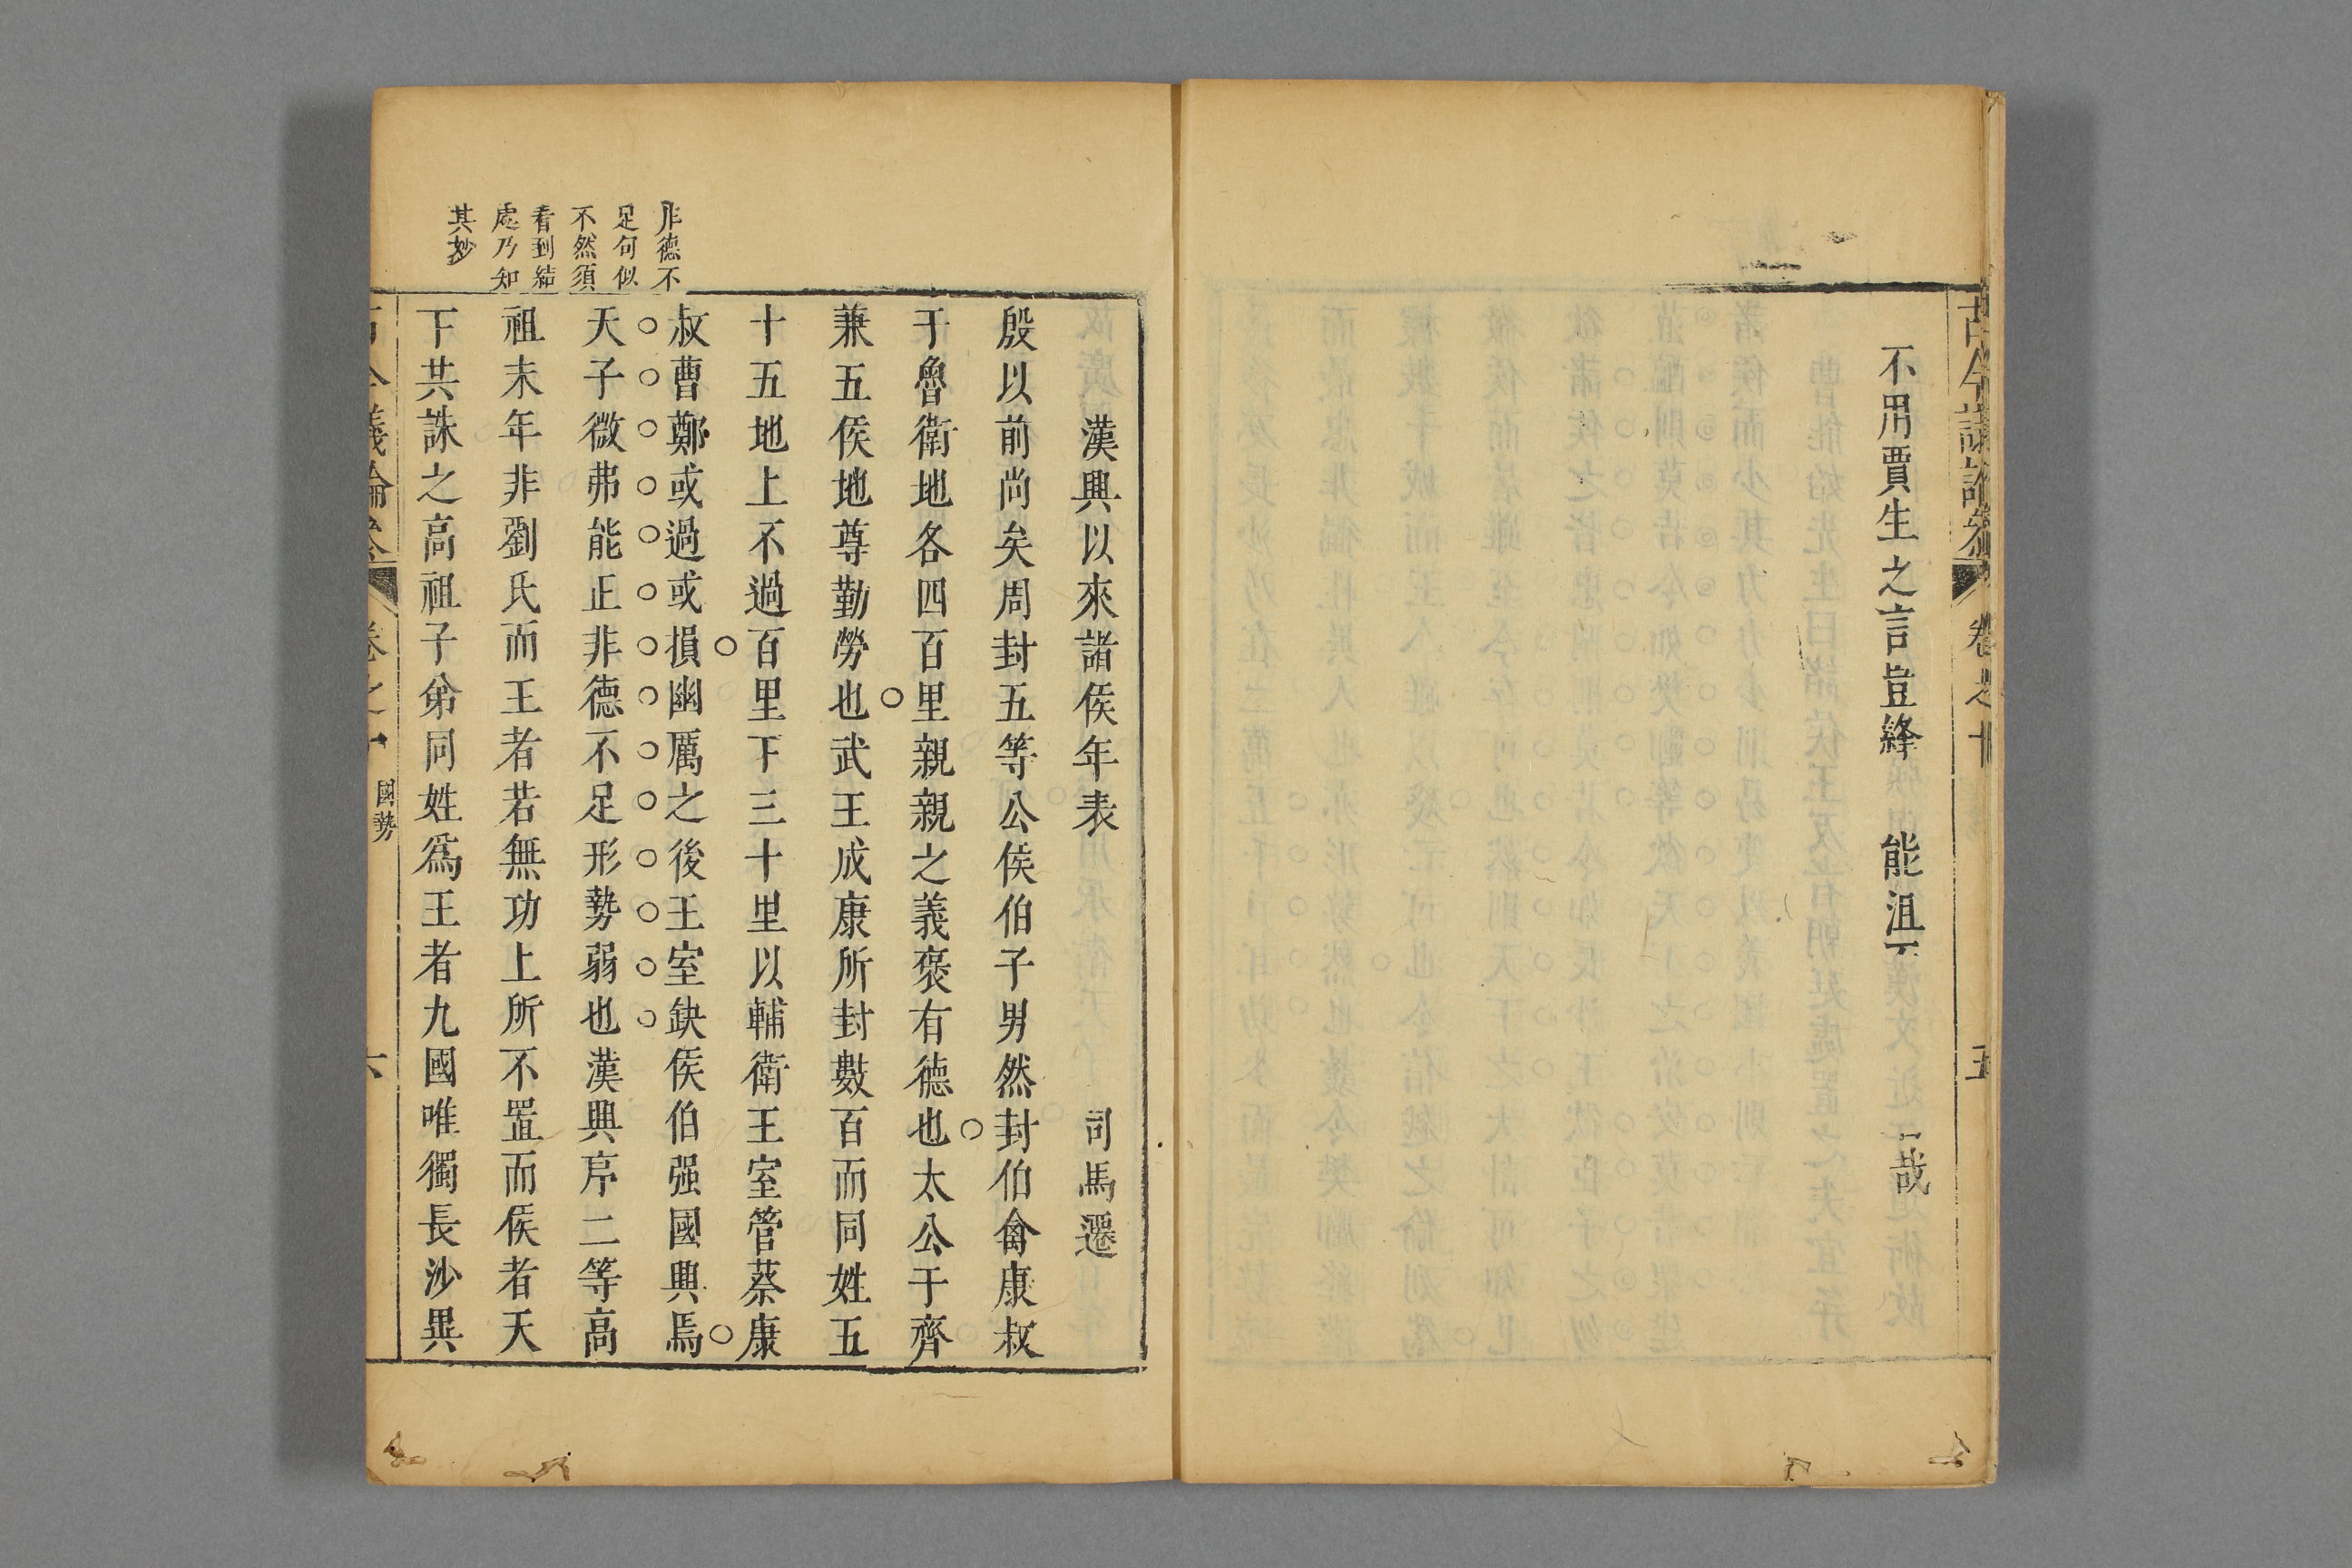 古今議論叅
卷之十
五
不用賈生之言豈絳 能沮 哉
漢興以來諸侯年表
司馬遷
殷以前尚矣周封五等公侯伯子男然封伯禽康叔
于魯衛地各四百里親親之義褒有德也太公于齊
兼五侯地尊勤勞也武王成康所封數百而同姓五
十五地上不過百里下三十里以輔衛王室管蔡康
叔曹鄭或過或損幽厲之後王室缺侯伯强國興焉
天子微弗能正非德不足形勢弱也漢興序二等高
祖末年非劉氏而王者若無功上所不置而侯者天
下共誅之高祖子弟同姓爲王者九國唯獨長沙異
非德不
足句似
不然須
看到結
處乃知
其妙
古今議論叅
卷之十
國勢
六